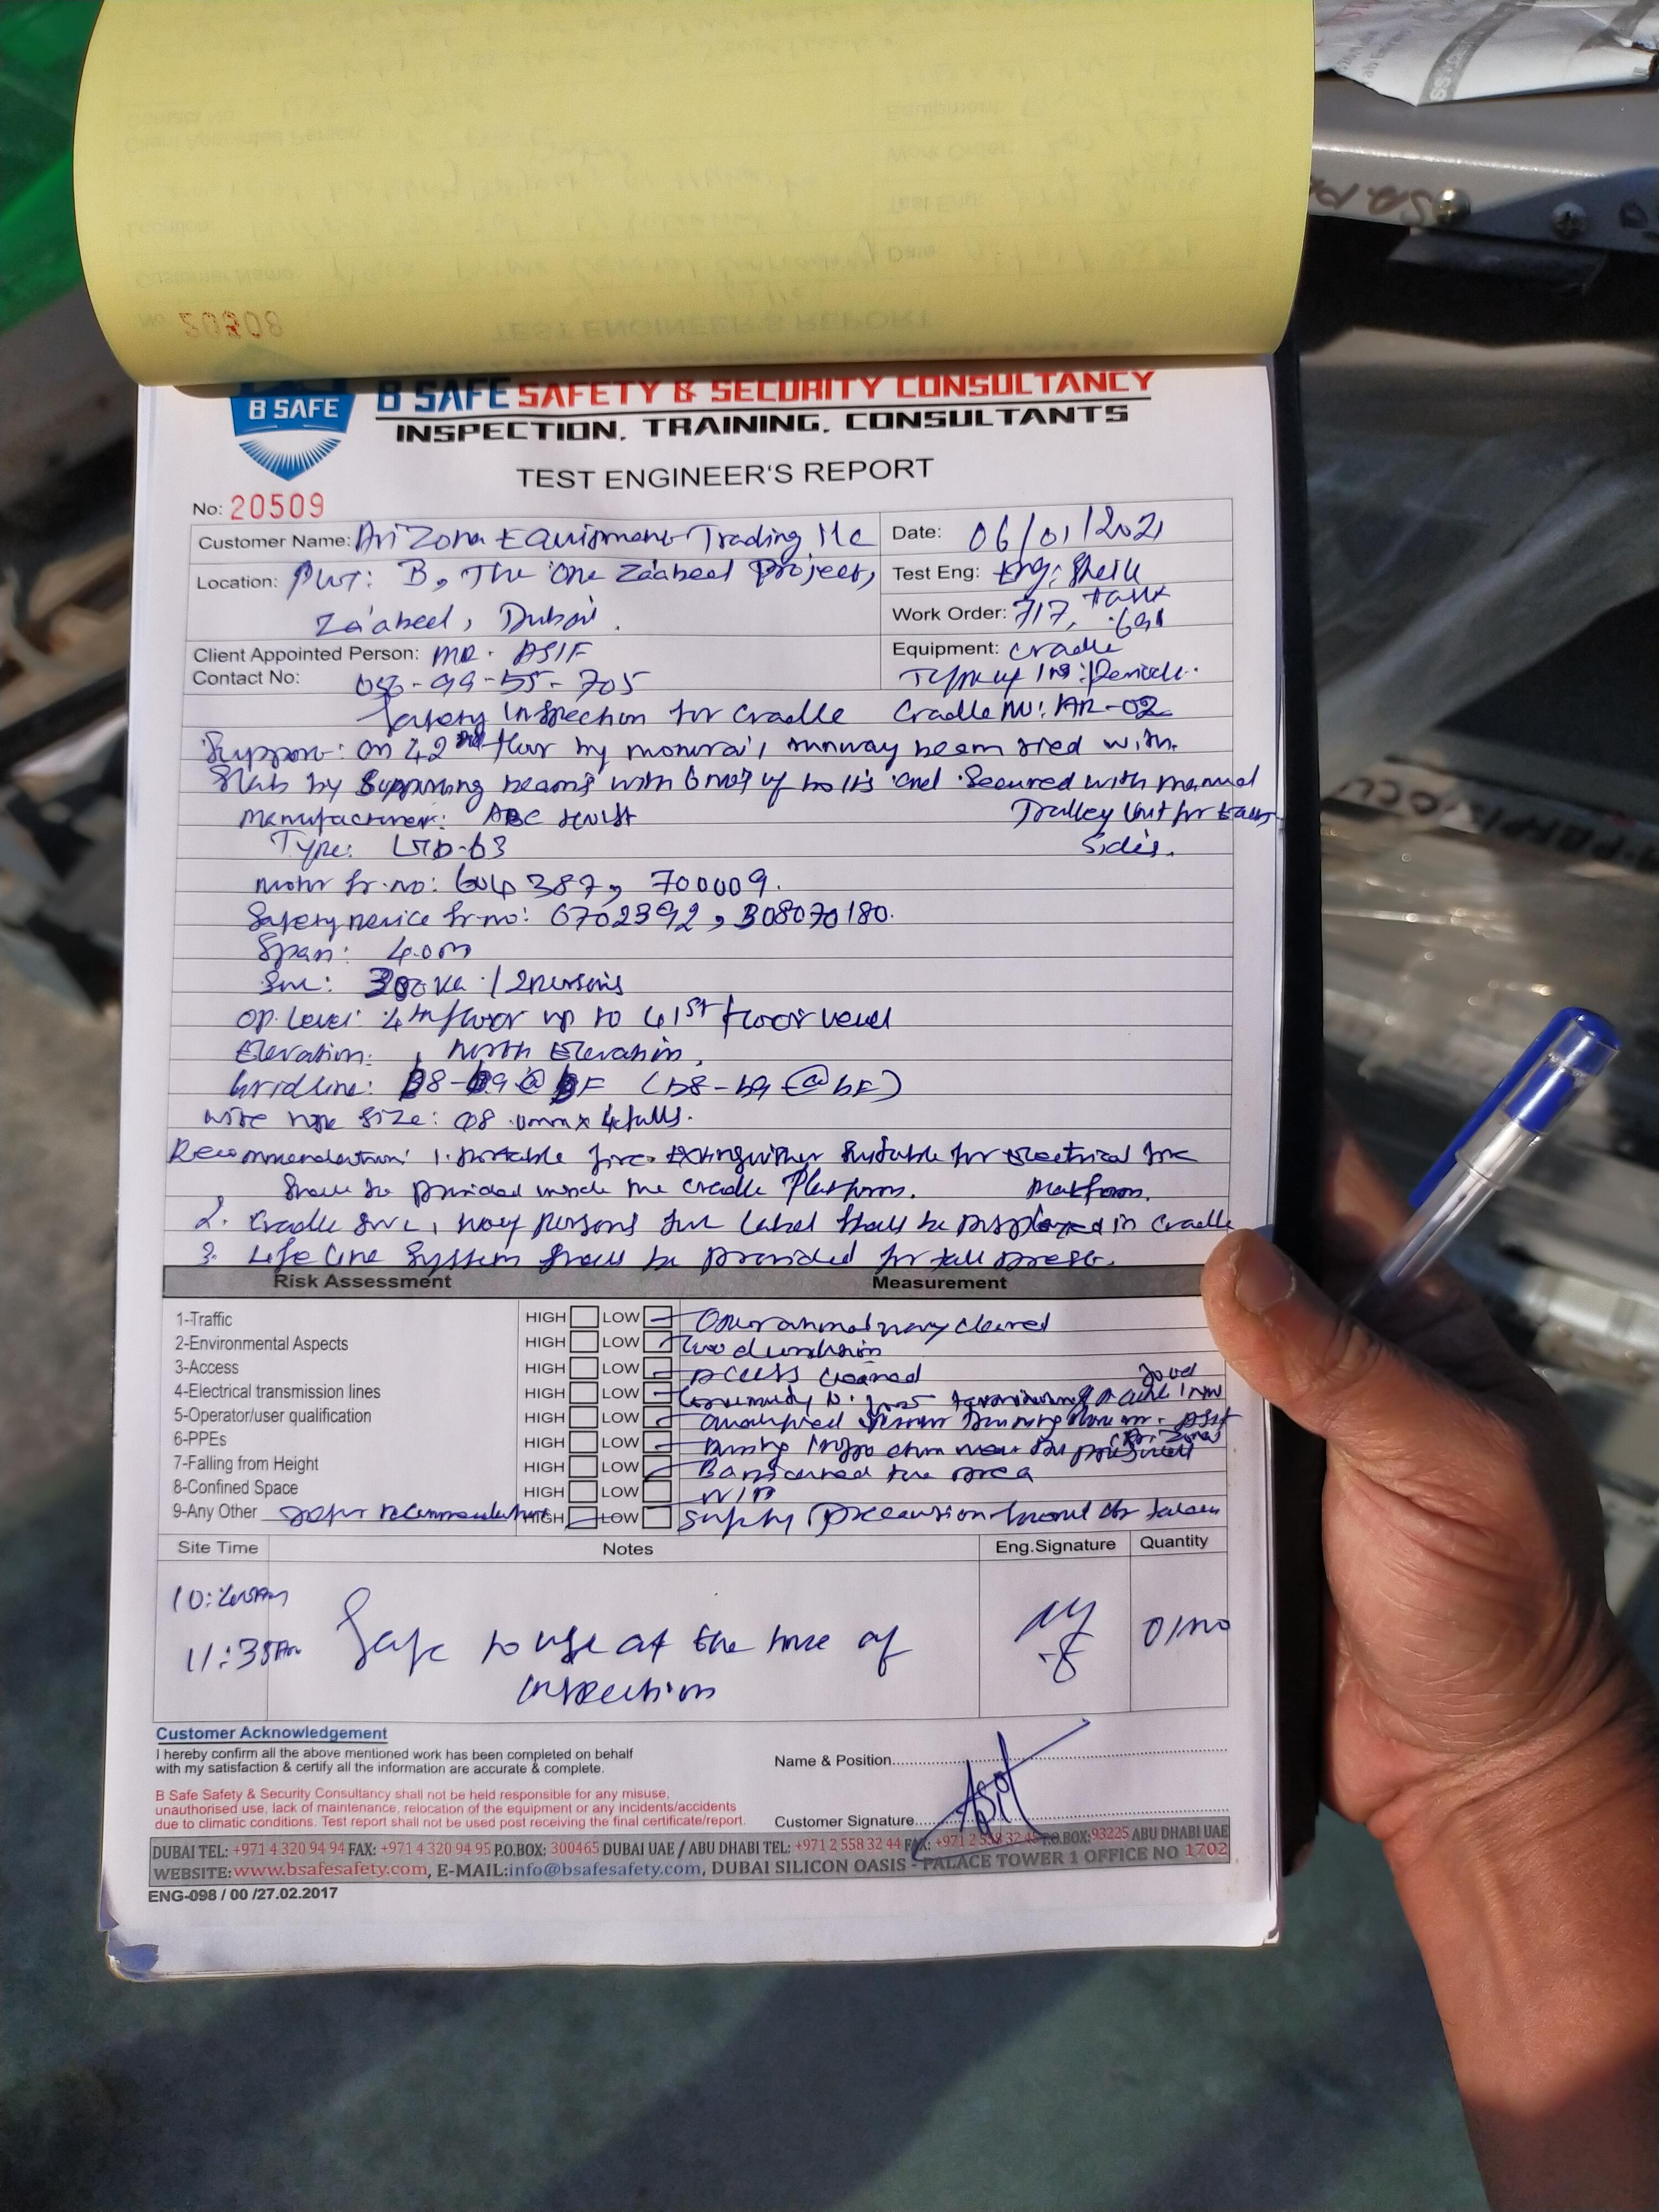 20508
B SAFE
B SAFE SAFETY & SECURITY CONSULTANCY
INSPECTION, TRAINING, CONSULTANTS
TEST ENGINEER'S REPORT
No: 20509
Customer Name: Arizona Equipment Trading llc
Date: 06/01/2021
Location: Plot: B, The One Za'abeel Project,
Test Eng: Eng: Sheik
Za'abeel, Dubai.
Work Order: 717, Task
Client Appointed Person: MR. ASIF
Equipment: Cradle
Contact No: 056-99-55-705
Type of Ins: Periodic.
Safety Inspection for Cradle Cradle No: AR-02
Support: on 42nd floor by monorail runway beam tied with
Slab by Supporting beams with 6 nos of bolts and Secured with manual
Manufacturer: ABC Hoist
Trolley Unit for
Type: LTD-63
Sides.
Motor Sr.no: 604387, 700009.
Safety Device Sr.no: 0702392, B08070180.
Span: 4.0m
SWL: 300 KG / 2 Persons
Op. Level: 4th floor up to 41st floor level
Elevation: North Elevation,
Gridline: b8-b9 @ bF (b8-b9 @ bF)
Wire rope size: Ø8.0mm x 4 falls.
Recommendation: 1. Portable fire Extinguisher Suitable for Electrical fire
Shall be provided inside the Cradle Platform. Platform.
2. Cradle SWL, no of persons SWL Label Shall be Displayed in Cradle
3. Life Line System Shall be provided for fall
Risk Assessment Measurement
1-Traffic HIGH LOW cleared
2-Environmental Aspects HIGH LOW Good condition
3-Access HIGH LOW Access cleared
4-Electrical transmission lines HIGH LOW Good
5-Operator/user qualification HIGH LOW Qualified Person Mr. Asif
(Arizona)
6-PPEs HIGH LOW During Inspection
7-Falling from Height HIGH LOW Barricaded the area
8-Confined Space HIGH LOW N/A
9-Any Other Refer recommendation HIGH LOW Safety Precaution to be taken
Site Time Notes Eng.Signature Quantity
11:35Am Safe to use at the time of 01no
inspection
Customer Acknowledgement
I hereby confirm all the above mentioned work has been completed on behalf
with my satisfaction & certify all the information are accurate & complete.
Name & Position
B Safe Safety & Security Consultancy shall not be held responsible for any misuse,
unauthorised use, lack of maintenance, relocation of the equipment or any incidents/accidents
due to climatic conditions. Test report shall not be used post receiving the final certificate/report.
Customer Signature Asif
DUBAI TEL: +971 4 320 94 94 FAX: +971 4 320 94 95 P.O.BOX: 300465 DUBAI UAE / ABU DHABI TEL: +971 2 558 32 44 FAX: +971 2 558 32 45 P.O.BOX: 93225 ABU DHABI UAE
WEBSITE: www.bsafesafety.com, E-MAIL:info@bsafesafety.com, DUBAI SILICON OASIS - PALACE TOWER 1 OFFICE NO 1702
ENG-098 / 00 /27.02.2017